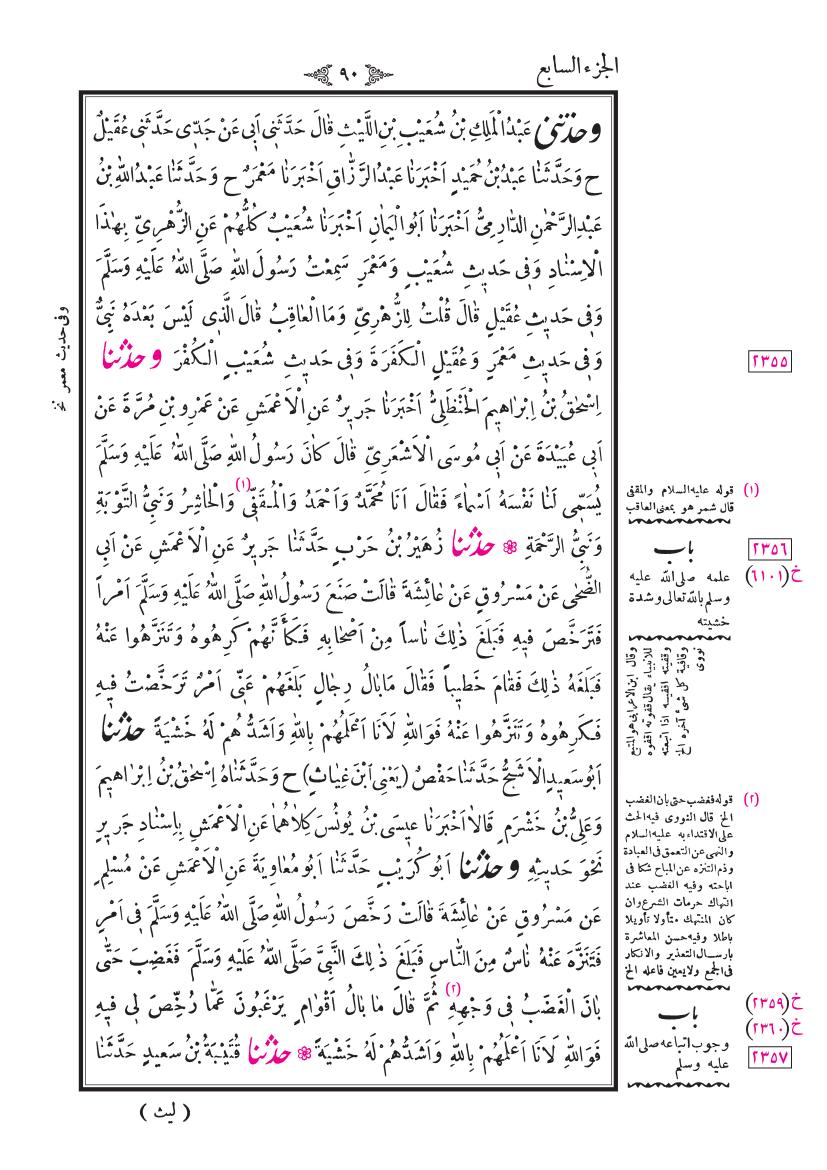 الجزء السابع
٩٠
وَحَدَّثَنِى عَبْدُالْمَلِكِ بْنُ شُعَيْبِ بْنِ اللَّيْثِ قَالَ حَدَّثَنِى اَبِى عَنْ جَدِّى حَدَّثَنِى عُقَيْلٌ
ح وَحَدَّثَنَا عَبْدُ بْنُ حُمَيْدٍ اَخْبَرَنَا عَبْدُ الرَّزَّاقِ اَخْبَرَنَا مَعْمَرٌ ح وَحَدَّثَنَا عَبْدُ اللهِ بْنُ
عَبْدِ الرَّحْمٰنِ الدَّارِمِىُّ اَخْبَرَنَا اَبُو الْيَمَانِ اَخْبَرَنَا شُعَيْبٌ كُلُّهُمْ عَنِ الزُّهْرِىِّ بِهٰذَا
الْاِسْنَادِ وَفِى حَدِيثِ شُعَيْبٍ وَمَعْمَرٍ سَمِعْتُ رَسُولَ اللهِ صَلَّى اللهُ عَلَيْهِ وَسَلَّمَ
وَفِى حَدِيثِ عُقَيْلٍ قَالَ قُلْتُ لِلزُّهْرِىِّ وَمَا الْعَاقِبُ قَالَ الَّذِى لَيْسَ بَعْدَهُ نَبِىٌّ
وَفِى حَدِيثِ مَعْمَرٍ وَعُقَيْلٍ الْكَفَرَةَ وَفِى حَدِيثِ شُعَيْبٍ الْكُفْرَ وَحَدَّثَنَا
اِسْحٰقُ بْنُ اِبْرَاهِيمَ الْحَنْظَلِىُّ اَخْبَرَنَا جَرِيرٌ عَنِ الْاَعْمَشِ عَنْ عَمْرِو بْنِ مُرَّةَ عَنْ
اَبِى عُبَيْدَةَ عَنْ اَبِى مُوسَى الْاَشْعَرِىِّ قَالَ كَانَ رَسُولُ اللهِ صَلَّى اللهُ عَلَيْهِ وَسَلَّمَ
يُسَمِّى لَنَا نَفْسَهُ اَسْمَاءً فَقَالَ اَنَا مُحَمَّدٌ وَاَحْمَدُ وَالْمُقَفِّى (١) وَالْحَاشِرُ وَنَبِىُّ التَّوْبَةِ
وَنَبِىُّ الرَّحْمَةِ ❁ حَدَّثَنَا زُهَيْرُ بْنُ حَرْبٍ حَدَّثَنَا جَرِيرٌ عَنِ الْاَعْمَشِ عَنْ اَبِى
الضُّحٰى عَنْ مَسْرُوقٍ عَنْ عَائِشَةَ قَالَتْ صَنَعَ رَسُولُ اللهِ صَلَّى اللهُ عَلَيْهِ وَسَلَّمَ اَمْراً
فَتَرَخَّصَ فِيهِ فَبَلَغَ ذٰلِكَ نَاساً مِنْ اَصْحَابِهِ فَكَأَنَّهُمْ كَرِهُوهُ وَتَنَزَّهُوا عَنْهُ
فَبَلَغَهُ ذٰلِكَ فَقَامَ خَطِيباً فَقَالَ مَا بَالُ رِجَالٍ بَلَغَهُمْ عَنِّى اَمْرٌ تَرَخَّصْتُ فِيهِ
فَكَرِهُوهُ وَتَنَزَّهُوا عَنْهُ فَوَاللهِ لَاَنَا اَعْلَمُهُمْ بِاللهِ وَاَشَدُّهُمْ لَهُ خَشْيَةً حَدَّثَنَا
اَبُو سَعِيدٍ الْاَشَجُّ حَدَّثَنَا حَفْصٌ (يَعْنِى ابْنَ غِيَاثٍ) ح وَحَدَّثَنَاهُ اِسْحٰقُ بْنُ اِبْرَاهِيمَ
وَعَلِىُّ بْنُ خَشْرَمٍ قَالَا اَخْبَرَنَا عِيسَى بْنُ يُونُسَ كِلَاهُمَا عَنِ الْاَعْمَشِ بِاِسْنَادِ جَرِيرٍ
نَحْوَ حَدِيثِهِ وَحَدَّثَنَا اَبُو كُرَيْبٍ حَدَّثَنَا اَبُو مُعَاوِيَةَ عَنِ الْاَعْمَشِ عَنْ مُسْلِمٍ
عَنْ مَسْرُوقٍ عَنْ عَائِشَةَ قَالَتْ رَخَّصَ رَسُولُ اللهِ صَلَّى اللهُ عَلَيْهِ وَسَلَّمَ فِى اَمْرٍ
فَتَنَزَّهَ عَنْهُ نَاسٌ مِنَ النَّاسِ فَبَلَغَ ذٰلِكَ النَّبِىَّ صَلَّى اللهُ عَلَيْهِ وَسَلَّمَ فَغَضِبَ حَتّٰى
بَانَ الْغَضَبُ فِى وَجْهِهِ (٢) ثُمَّ قَالَ مَا بَالُ اَقْوَامٍ يَرْغَبُونَ عَمَّا رُخِّصَ لِى فِيهِ
فَوَاللهِ لَاَنَا اَعْلَمُهُمْ بِاللهِ وَاَشَدُّهُمْ لَهُ خَشْيَةً ❁ حَدَّثَنَا قُتَيْبَةُ بْنُ سَعِيدٍ حَدَّثَنَا
( ليث )
وفى حديث معمر نخ
٢٣٥٥
(١) قوله عليه السلام والمقفى
قال شمر هو بمعنى العاقب
٢٣٥٦
خ(٦١٠١)
باب
علمه صلى الله عليه
وسلم بالله تعالى وشدة
خشيته
وقال ابن الاعرابى هو المتبع
للانبياء يقال قفوته اقفوه
وقفيته اقفيه اذا اتبعته
وقافية كل شئ آخره الخ
نووى
(٢) قوله فغضب حتى بان الغضب
الخ قال النووى فيه الحث
على الاقتداء به عليه السلام
والنهى عن التعمق فى العبادة
وذم التنزه عن المباح شكا فى
اباحته وفيه الغضب عند
انتهاك حرمات الشرع وان
كان المنتهك متأولا تأويلا
باطلا وفيه حسن المعاشرة
بارسال التعذير والانكار
فى الجمع ولا يعين فاعله الخ
خ(٢٣٥٩)
خ(٢٣٦٠)
٢٣٥٧
باب
وجوب اتباعه صلى الله
عليه وسلم